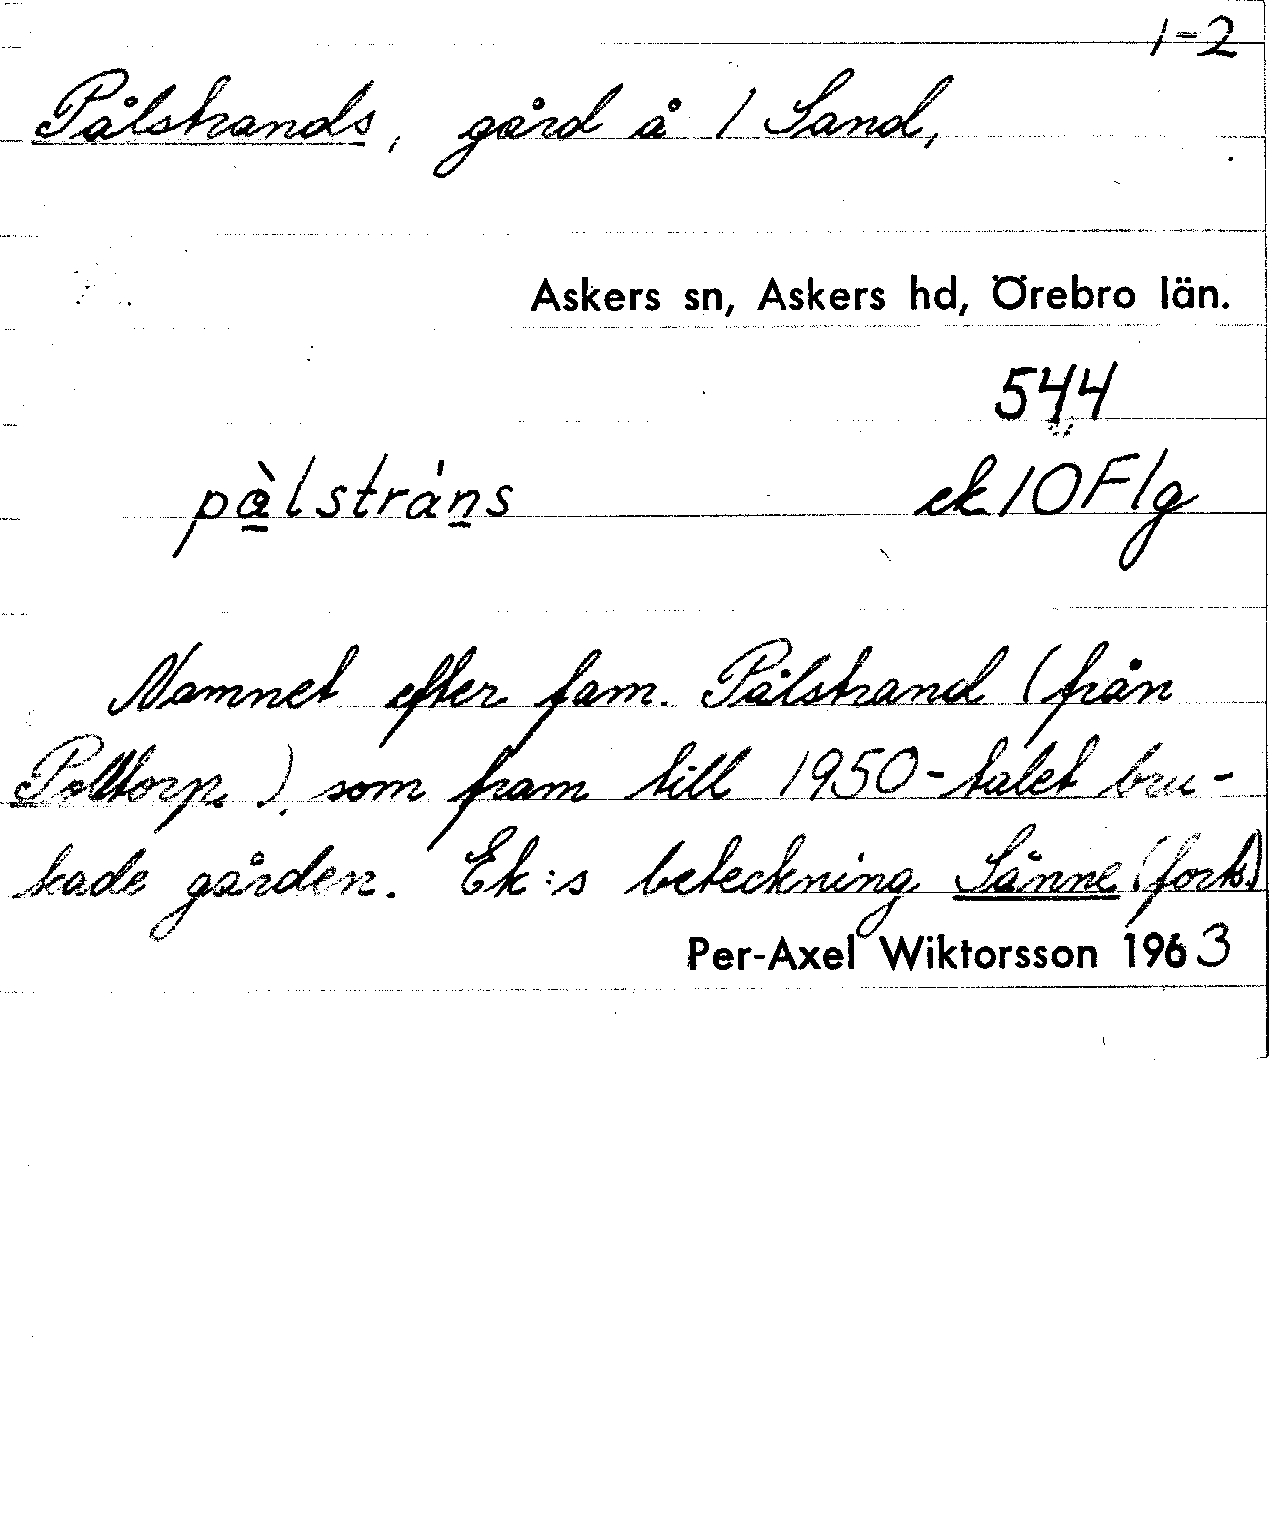 1-2
Pålstrands, gård å 1 Sand,
Askers sn, Askers hd, Örebro län.
544
pà̲lstrán̲s ek 10F1g
Namnet efter fam. Pålstrand (från
Polltorp), som fram till 1950-talet bru-
kade gården. Ek:s beteckning Sänne (forts)
Per-Axel Wiktorsson 1963